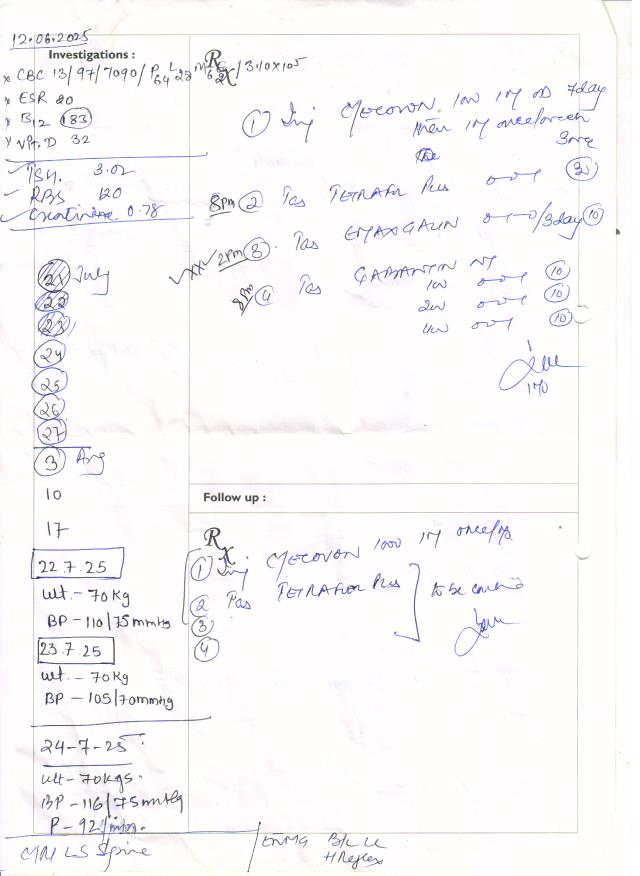 12.06.2025
Investigations :
x CBC 13/97/7090/P64 L28 /3.10x10⁵
x ESR 80
x B12 183
x Vit. D 32
TSH. 3.02
RBS 120
Creatinine 0.78
21 July
22
23
24
25
26
27
3 Aug
10
17
22.7.25
Wt. - 70 Kg
BP - 110/75 mmHg
23.7.25
Wt. - 70 Kg
BP - 105/70mmHg
24-7-25
Wt - 70Kgs.
BP - 116/75 mmHg
P - 92/min.
MRI LS Spine
Rx
1 Inj MECOVON 1000 IM OD 7day
then IM once/week
8pm 2 Tab TETRAFOL Plus 0-0-1 30
xx 2pm 3. Tab 0-1-0/3day 10
8pm 4 Tab GABANTIN NT
100 0-0-1 10
200 0-0-1 10
400 0-0-1 10
Follow up :
Rx
1 Inj MECOVON 1000 IM
2 Tab TETRAFOL Plus
3
4
to be
ENMG B/L LL
H Reflex